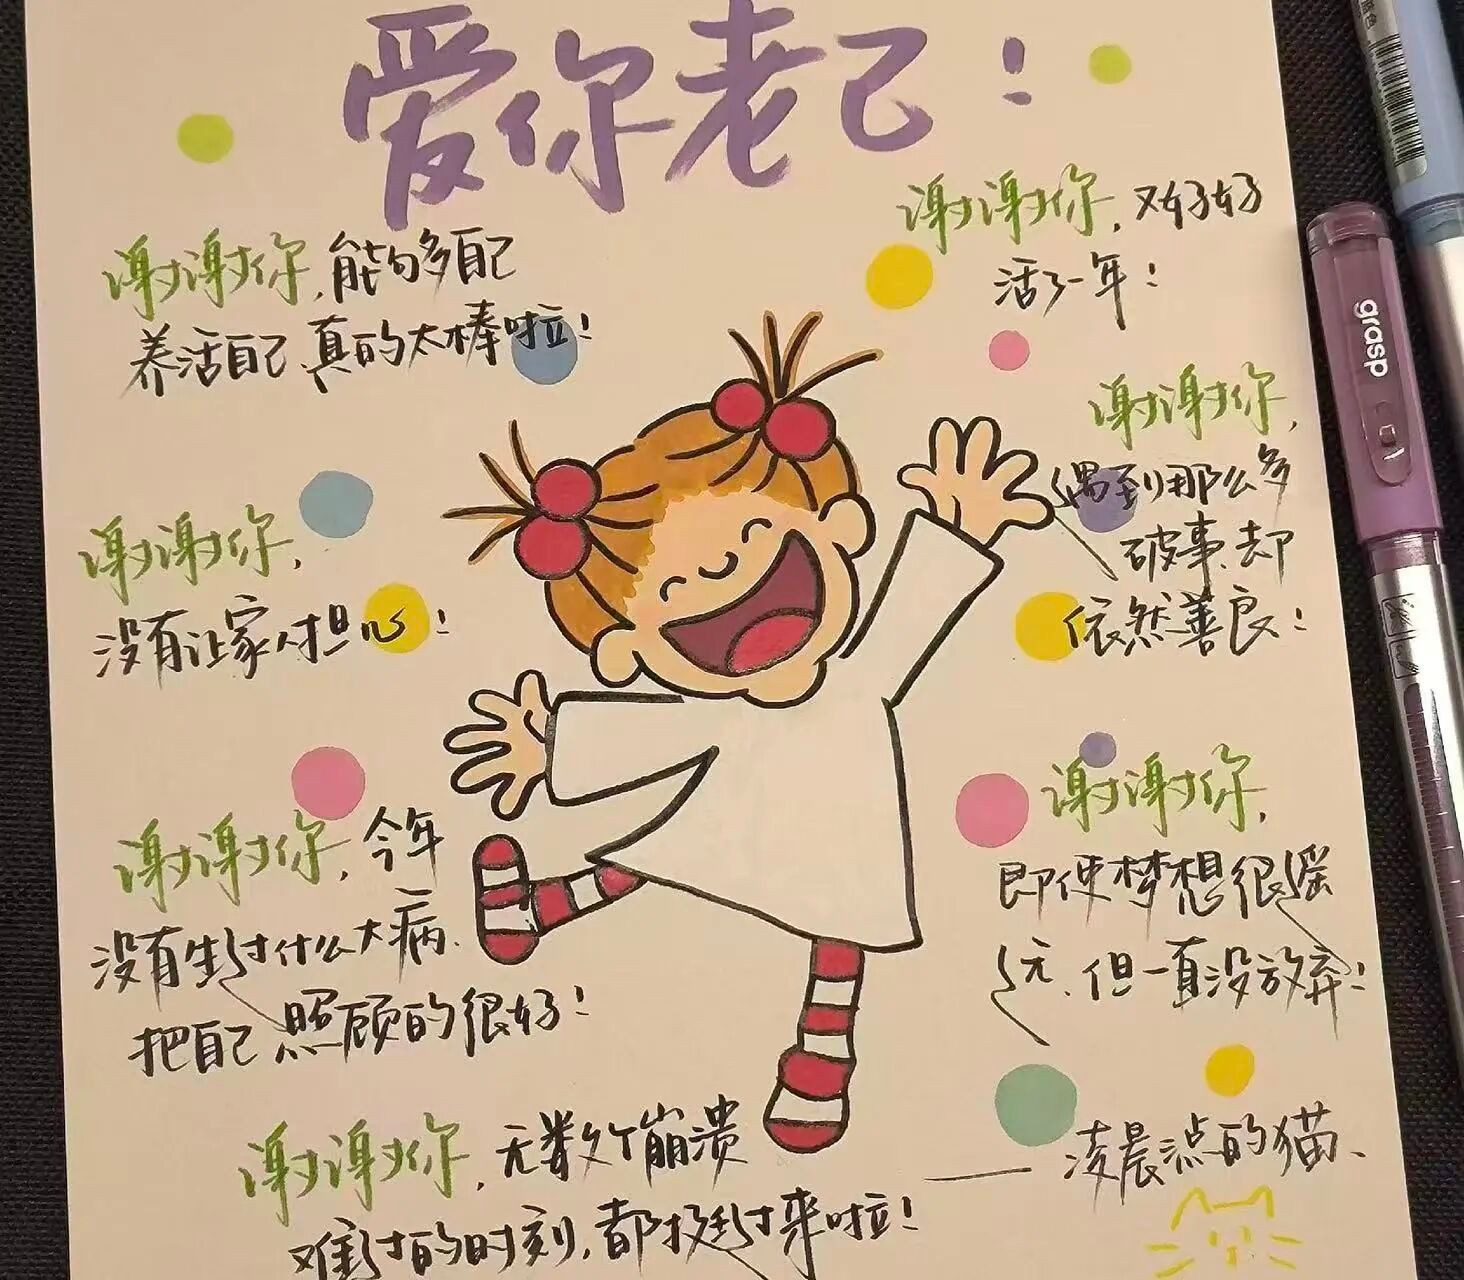 爱你老己！
谢谢你，能够多自己
养活自己、真的太棒啦！
谢谢你，又好好
活了一年！
谢谢你，
遇到那么多
破事、却
依然善良！
谢谢你，
没有让家人担心！
谢谢你，
即使梦想很遥
远、但一直没放弃！
谢谢你，今年
没有生过什么大病、
把自己照顾的很好！
谢谢你，无数个崩溃
难过的时刻，都挺过来啦！
——凌晨点的猫、
grasp
蓝色